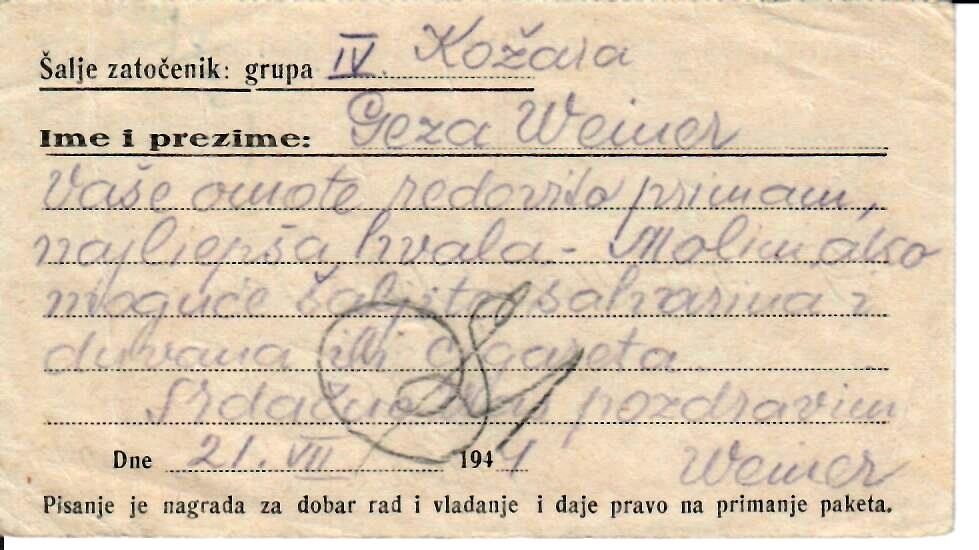 Šalje zatočenik: grupa IV. Kožara
Ime i prezime: Geza Weiner
Vaše omote redovito primam,
najljepša hvala - Molim, ako
moguće šaljite saharina i
duvana ili cigareta.
Srdačno pozdravim
Dne 21. VII 1944 Weiner
Pisanje je nagrada za dobar rad i vladanje i daje pravo na primanje paketa.